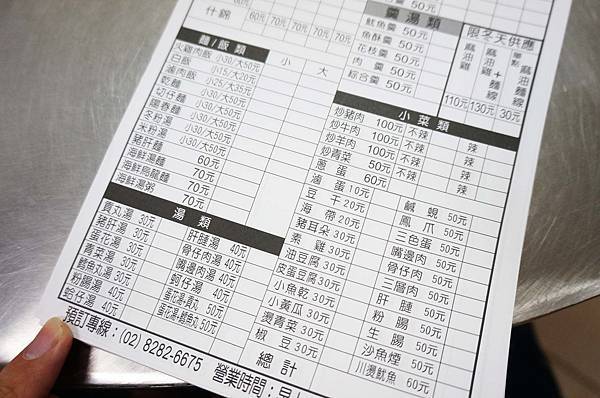 什錦 60元 70元 70元 70元 70元
羹湯類
魷魚羹 50元
魚酥羹 50元
花枝羹 50元
肉羹 50元
綜合羹 50元
限冬天供應
麻油雞 110元
麻油雞+麵線 130元
單點麻油麵線 30元
麵/飯類 小 大
火雞肉飯 小30/大50元
白飯 小15/大20元
滷肉飯 小25/大35元
乾麵 小30/大50元
切仔麵 小30/大50元
陽春麵 小30/大50元
冬粉湯 小30/大50元
米粉湯 小30/大50元
豬肝麵 60元
海鮮湯麵 70元
海鮮烏龍麵 70元
海鮮湯粥 70元
湯類
貢丸湯 30元 肝腱湯 40元
豬肝湯 30元 骨仔肉湯 40元
蛋花湯 30元 嘴邊肉湯 40元
青菜湯 30元 蚵仔湯 40元
鱈魚丸湯 30元 蛋花湯+貢丸 50元
粉腸湯 40元 蛋花湯+鱈魚丸 50元
蛤仔湯 40元
小菜類
炒豬肉 100元 不辣 辣
炒牛肉 100元 不辣 辣
炒羊肉 100元 不辣 辣
炒青菜 50元 不辣 辣
蔥蛋 60元
滷蛋 10元 鹹蜆 50元
豆干 20元 鳳爪 50元
海帶 20元 三色蛋 50元
豬耳朵 30元 嘴邊肉 50元
素雞 30元 骨仔肉 50元
油豆腐 30元 三層肉 50元
皮蛋豆腐 30元 肝腱 50元
小魚乾 30元 粉腸 50元
小黃瓜 30元 生腸 50元
燙青菜 30元 沙魚煙 50元
椒豆 30元 川燙魷魚 60元
總計
預訂專線：(02) 8282-6675 營業時間：早上